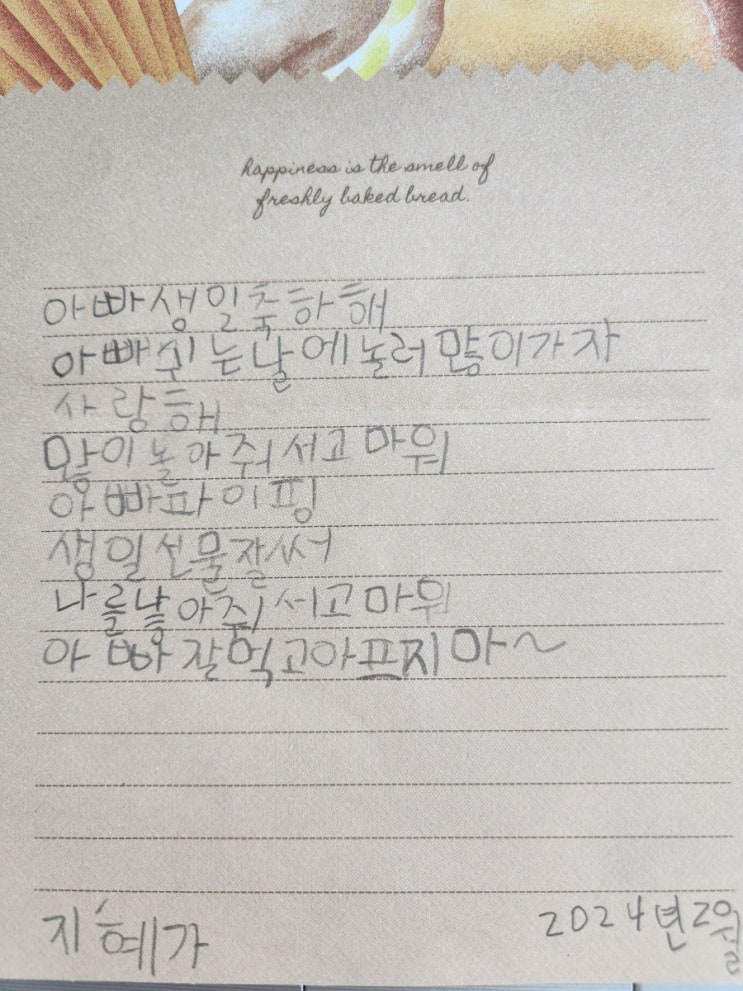 happiness is the smell of
freshly baked bread.
아빠생일축하해
아빠쉬는날에놀러많이가자
사랑해
많이놀아줘서고마워
아빠파이핑
생일선물잘써
나를낳아줘서고마워
아빠잘먹고아프지마~
지혜가
2024년2월